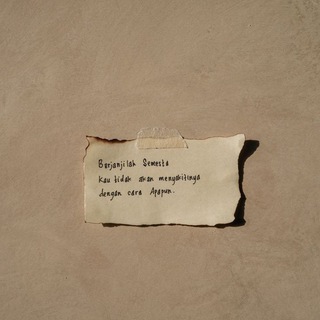 Berjanjilah Semesta
Kau tidak akan menyakitinya
dengan cara Apapun.